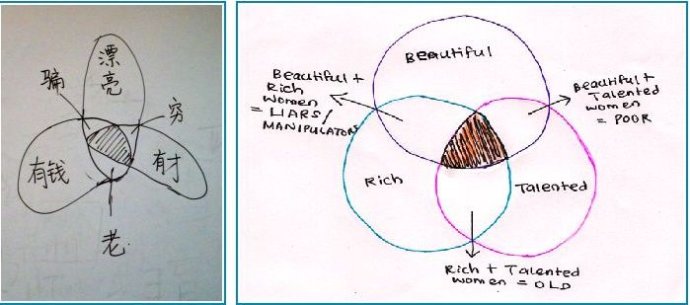 漂
亮
骗
穷
有钱
有才
老
Beautiful
Beautiful +
Rich
Women
= LIARS/
MANIPULATORS
Beautiful +
Talented
women
= POOR
Rich
Talented
Rich + Talented
women = OLD